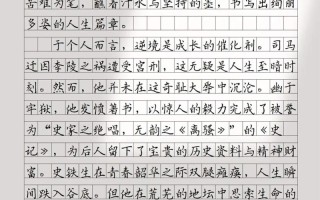 苦难为笔，蘸着汗水与坚持的墨，书写出绚丽
多姿的人生篇章。
于个人而言，逆境是成长的催化剂。司马
迁因李陵之祸遭受宫刑，这无疑是人生至暗时
刻。然而，他并未在这奇耻大辱中沉沦。幽于
牢狱，他发愤著书，以惊人的毅力完成了被誉
为“史家之绝唱，无韵之《离骚》”的《史
记》，为后人留下了宝贵的历史资料与精神财
富。史铁生在青春韶华之际双腿瘫痪，人生瞬
间跌入谷底。但他在荒芜的地坛中思索生命的